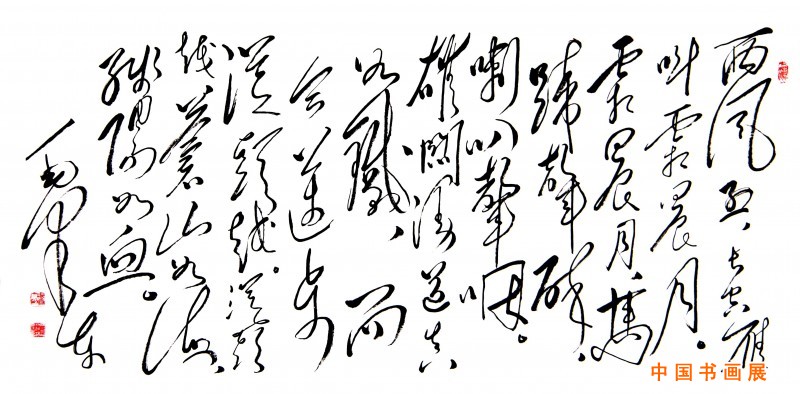 西風烈、長空雁
叫霜晨月。
霜晨月、馬
蹄聲碎、
喇叭聲咽。
雄關漫道真
如鐵、而
今邁步
從頭越。從頭
越蒼山如海、
殘陽如血。
毛澤東
中国书画展